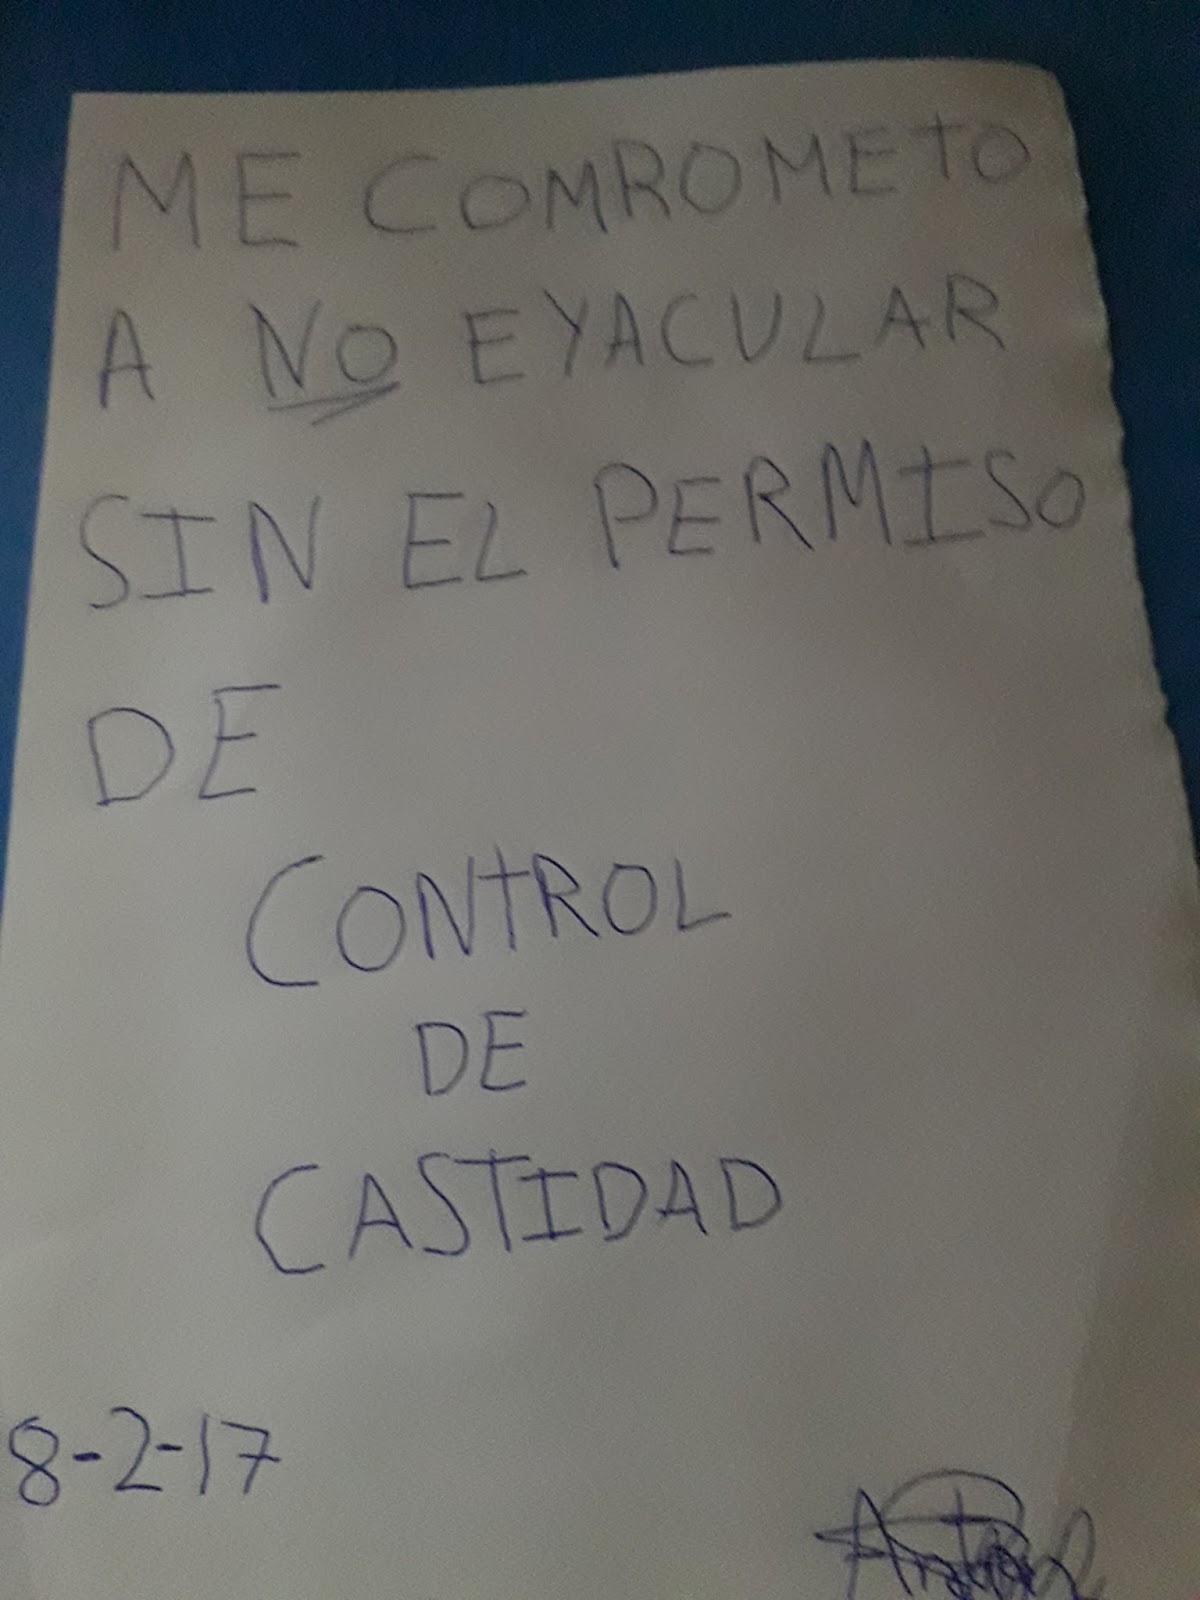 ME COMROMETO
A NO EYACULAR
SIN EL PERMISO
DE
CONTROL
DE
CASTIDAD
8-2-17